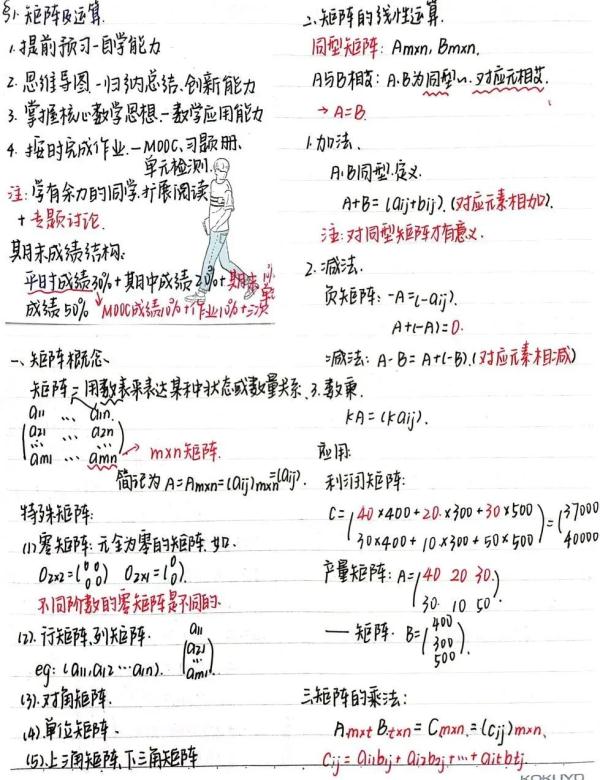 §1. 矩阵及运算.
1. 提前预习-自学能力
2. 思维导图-归纳总结.创新能力
3. 掌握核心数学思想-数学应用能力
4. 按时完成作业.-MOOC.习题册.
单元检测.
注:学有余力的同学.扩展阅读
+专题讨论.
期末成绩结构:
平时成绩30%+期中成绩20%+期末
成绩50% MOOC成绩10%+作业10%+
一、矩阵概念.
矩阵=用数表来表达某种状态或数量关系.
a11 … a1n.
a21 … a2n
… …
am1 … amn → m×n矩阵.
简记为 A=Am×n=(aij)m×n=(aij).
特殊矩阵:
(1)零矩阵:元全为零的矩阵.如.
O2×2=(0 0
0 0) O2×1=(0
0).
不同阶数的零矩阵是不同的.
(2). 行矩阵,列矩阵.
eg: (a11,a12…a1n).
a11
a21
…
am1
(3).对角矩阵.
(4).单位矩阵.
(5).上三角矩阵,下三角矩阵
二.矩阵的线性运算.
同型矩阵: Am×n, Bm×n.
A与B相等: A.B为同型~.对应元相等.
→ A=B.
1.加法.
A.B同型.定义.
A+B=(aij+bij).(对应元素相加).
注:对同型矩阵才有意义.
2.减法.
负矩阵: -A=(-aij).
A+(-A)=0.
减法: A-B=A+(-B).(对应元素相减)
3.数乘.
kA=(kaij).
应用:
利润矩阵:
C=(40×400+20×300+30×500
30×400+10×300+50×500)=(37000
40000
产量矩阵: A=(40 20 30
30 10 50).
— 矩阵. B=(400
300
500).
三矩阵的乘法:
Am×t Bt×n=Cm×n=(cij)m×n.
Cij=ai1b1j+ai2b2j+…+aitbtj.
KOKUYO